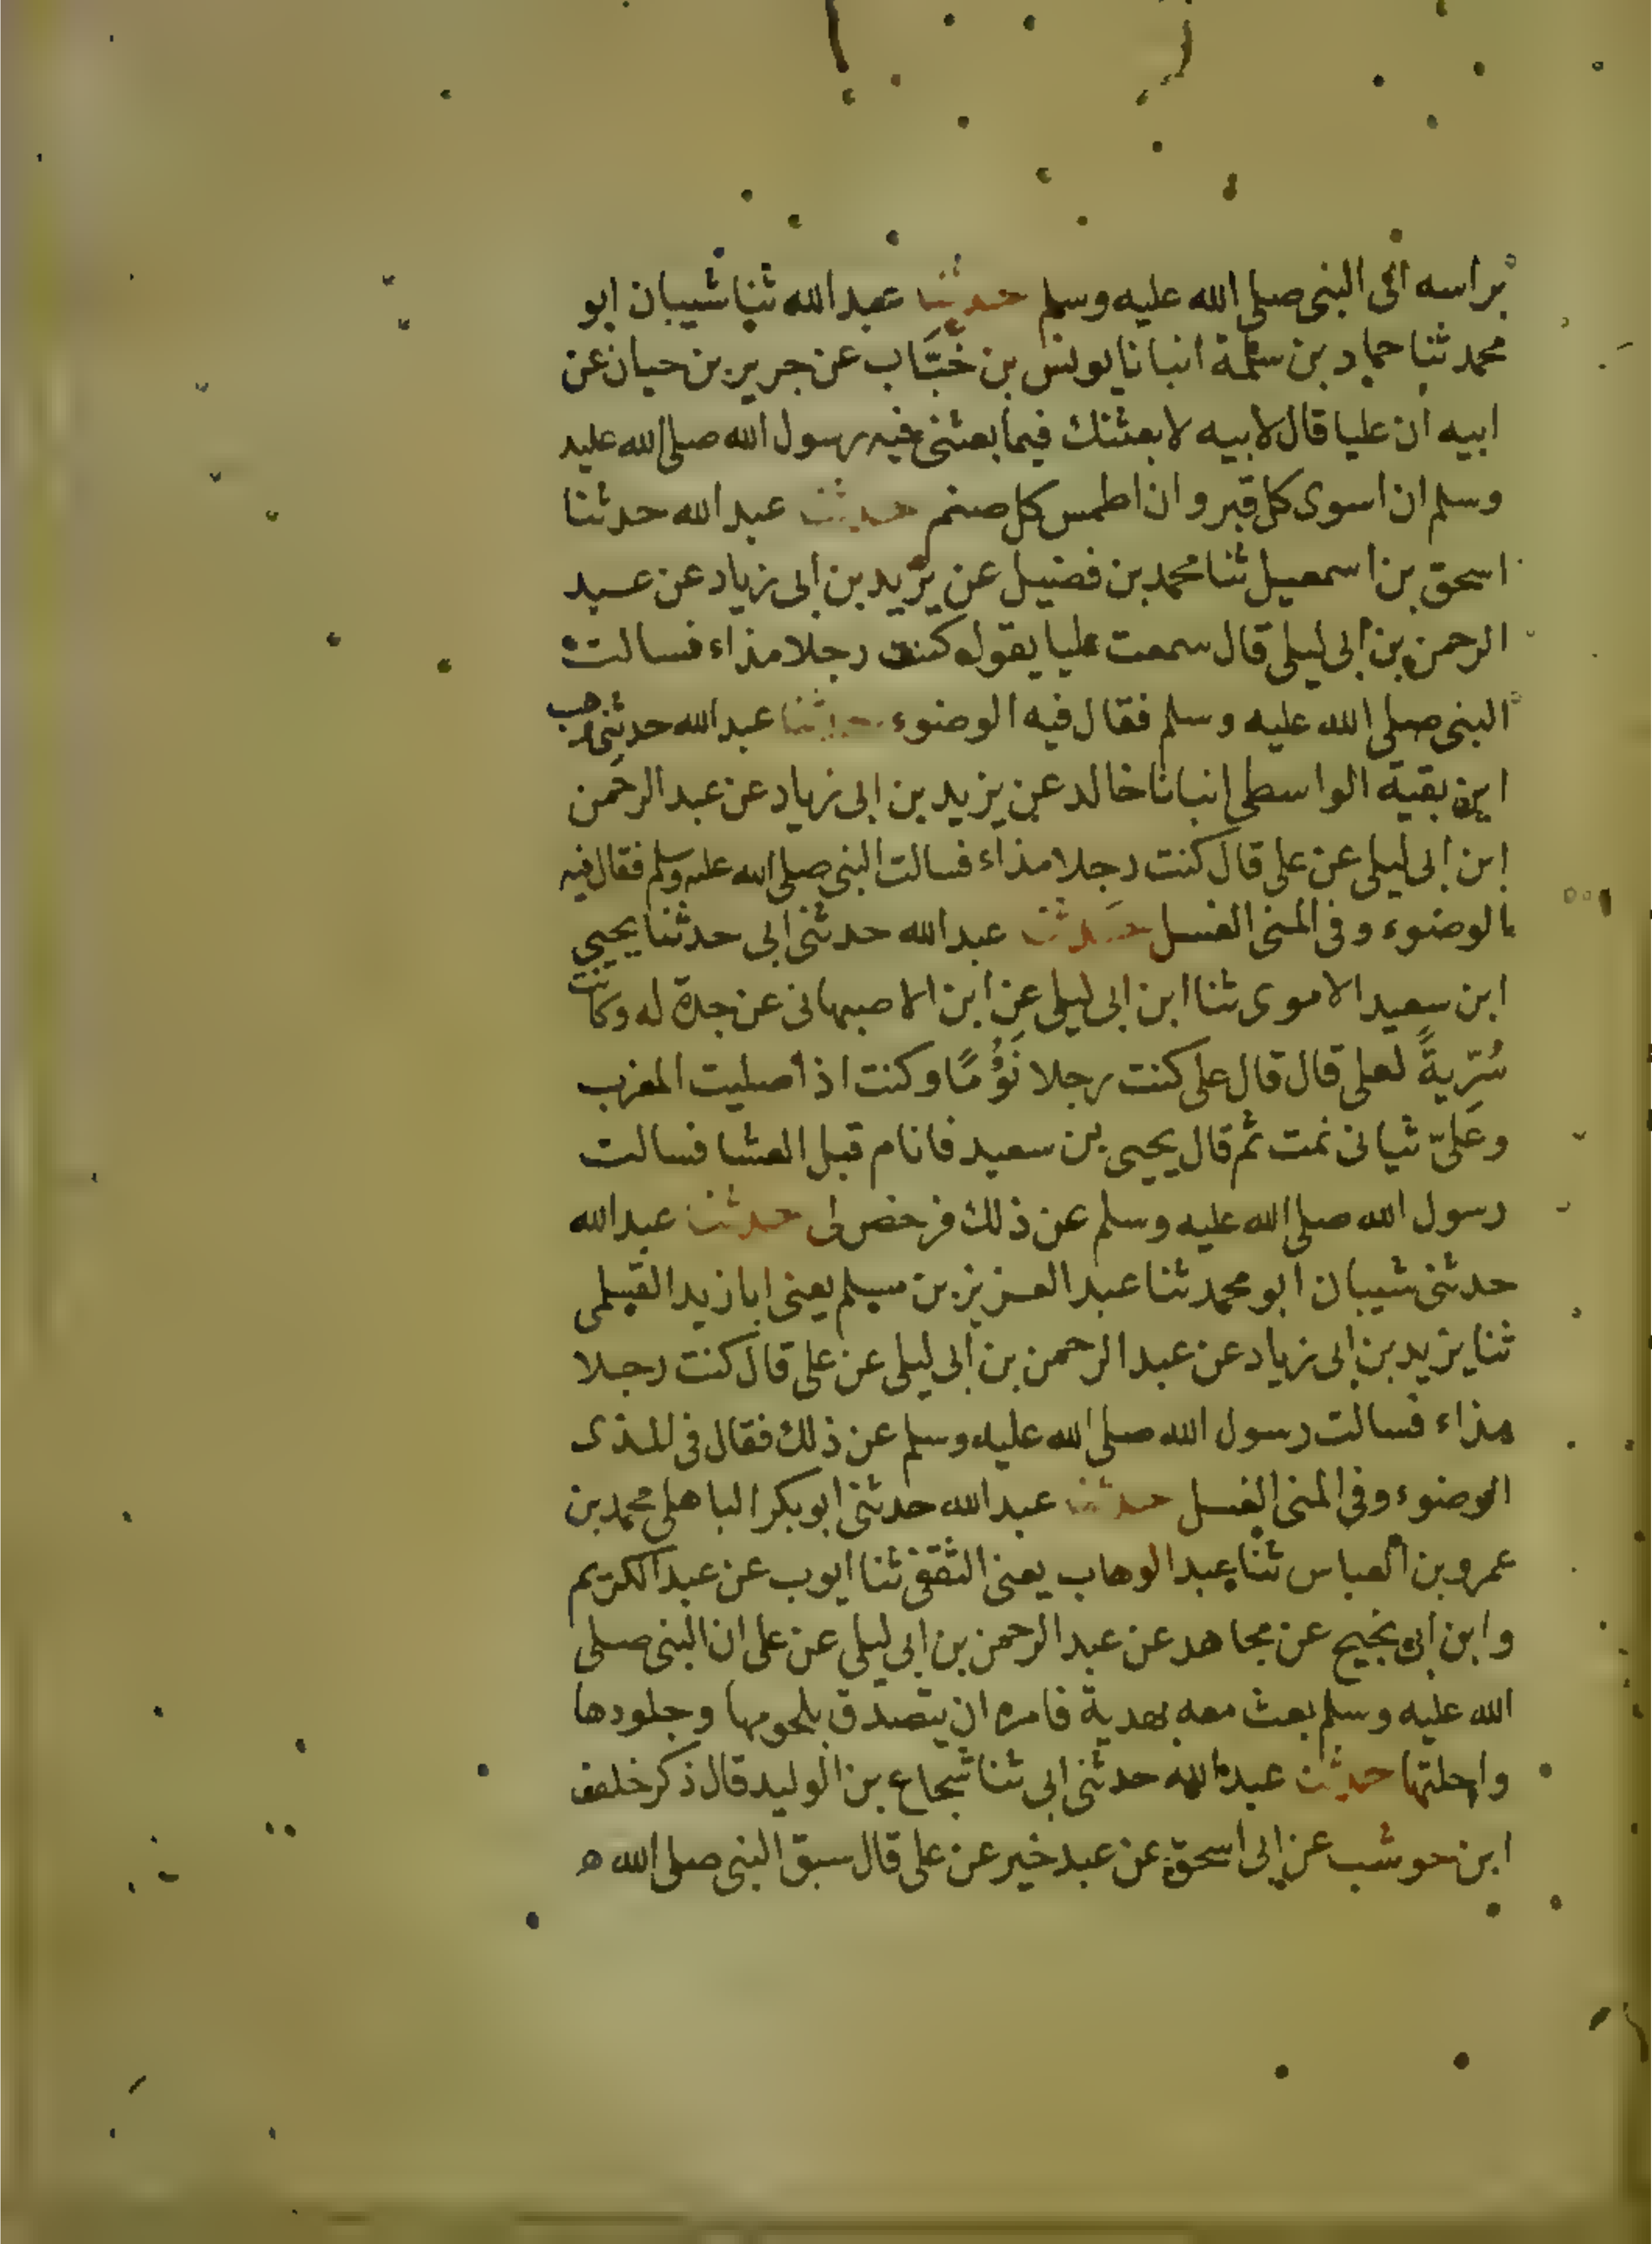 براسه الى النبى صلى الله عليه وسلم حدثنا عبد الله ثنا شيبان ابو
محمد ثنا حماد بن سلمة انبانا يونس بن خبَّاب عن جرير بن حيان عن
ابيه ان عليا قال لابيه لابعثنك فيما بعثنى فيه رسول الله صلى الله عليه
وسلم ان اسوى كل قبر وان اطمس كل صنم حدثنا عبد الله حدثنا
اسحق بن اسمعيل ثنا محمد بن فضيل عن يزيد بن ابى زياد عن عبد
الرحمن بن ابى ليلى قال سمعت عليا يقول كنت رجلا مذاء فسالت
النبى صلى الله عليه وسلم فقال فيه الوضوء حدثنا عبد الله حدثنى وهب
ابن بقية الواسطى انبانا خالد عن يزيد بن ابى زياد عن عبد الرحمن
ابن ابى ليلى عن على قال كنت رجلا مذاء فسالت النبى صلى الله عليه وسلم فقال فيه
الوضوء وفى المنى الغسل حدثنا عبد الله حدثنى ابى حدثنا يحيى
ابن سعيد الاموى ثنا ابن ابى ليلى عن ابن الاصبهانى عن جدة له وكانت
سُرّيةً لعلى قال قال على كنت رجلا نَؤُمًا وكنت اذا صليت المغرب
وعَلىّ ثيانى نمت ثم قال يحيى بن سعيد فانام قبل العشا فسالت
رسول الله صلى الله عليه وسلم عن ذلك فرخص لى حدثنا عبد الله
حدثنى شيبان ابو محمد ثنا عبد العزيز بن مسلم يعنى ابا زيد القسلمى
ثنا يزيد بن ابى زياد عن عبد الرحمن بن ابى ليلى عن على قال كنت رجلا
مذاء فسالت رسول الله صلى الله عليه وسلم عن ذلك فقال فى المذى
الوضوء وفى المنى الغسل حدثنا عبد الله حدثنى ابو بكر الباهلى محمد بن
عمرو بن العباس ثنا عبد الوهاب يعنى الثقفى ثنا ايوب عن عبد الكريم
وابن ابى نجيح عن مجاهد عن عبد الرحمن بن ابى ليلى عن على ان النبى صلى
الله عليه وسلم بعث معه بهدية فامره ان يتصدق بلحومها وجلودها
واجلتها حدثنا عبد الله حدثنى ابى ثنا شجاع بن الوليد قال ذكر خلف
ابن حوشب عن ابى اسحق عن عبد خير عن على قال سبق النبى صلى الله